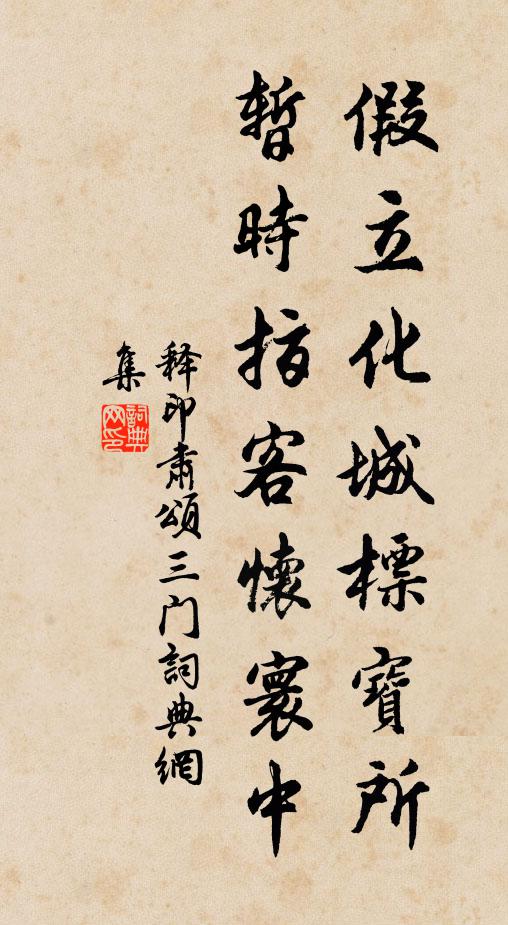 假立化城標寶所
暫時指客懷寰中
释印肃頌三门詞典網
集
詞典
网印